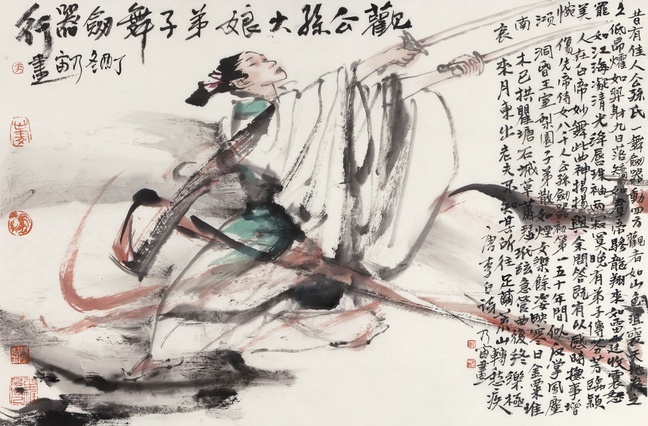 觀公孫大娘弟子舞劍器
行
畫
昔有佳人公孫氏一舞劍器動四方觀者如山色沮喪天地為之
久低昂㸌如羿射九日落矯如群帝驂龍翔來如雷霆收震怒
罷如江海凝清光絳唇珠袖兩寂寞晚有弟子傳芬芳臨潁
美人在白帝妙舞此曲神揚揚與余問答既有以感時撫事增
惋傷先帝侍女八千人公孫劍器初第一五十年間似反掌風塵
澒洞昏王室梨園子弟散如煙女樂餘姿映寒日金粟堆
南木已拱瞿塘石城草蕭瑟玳弦急管曲復終樂極
哀來月東出老夫不知其所往足繭荒山轉愁疾
唐李白詩乃宙畫